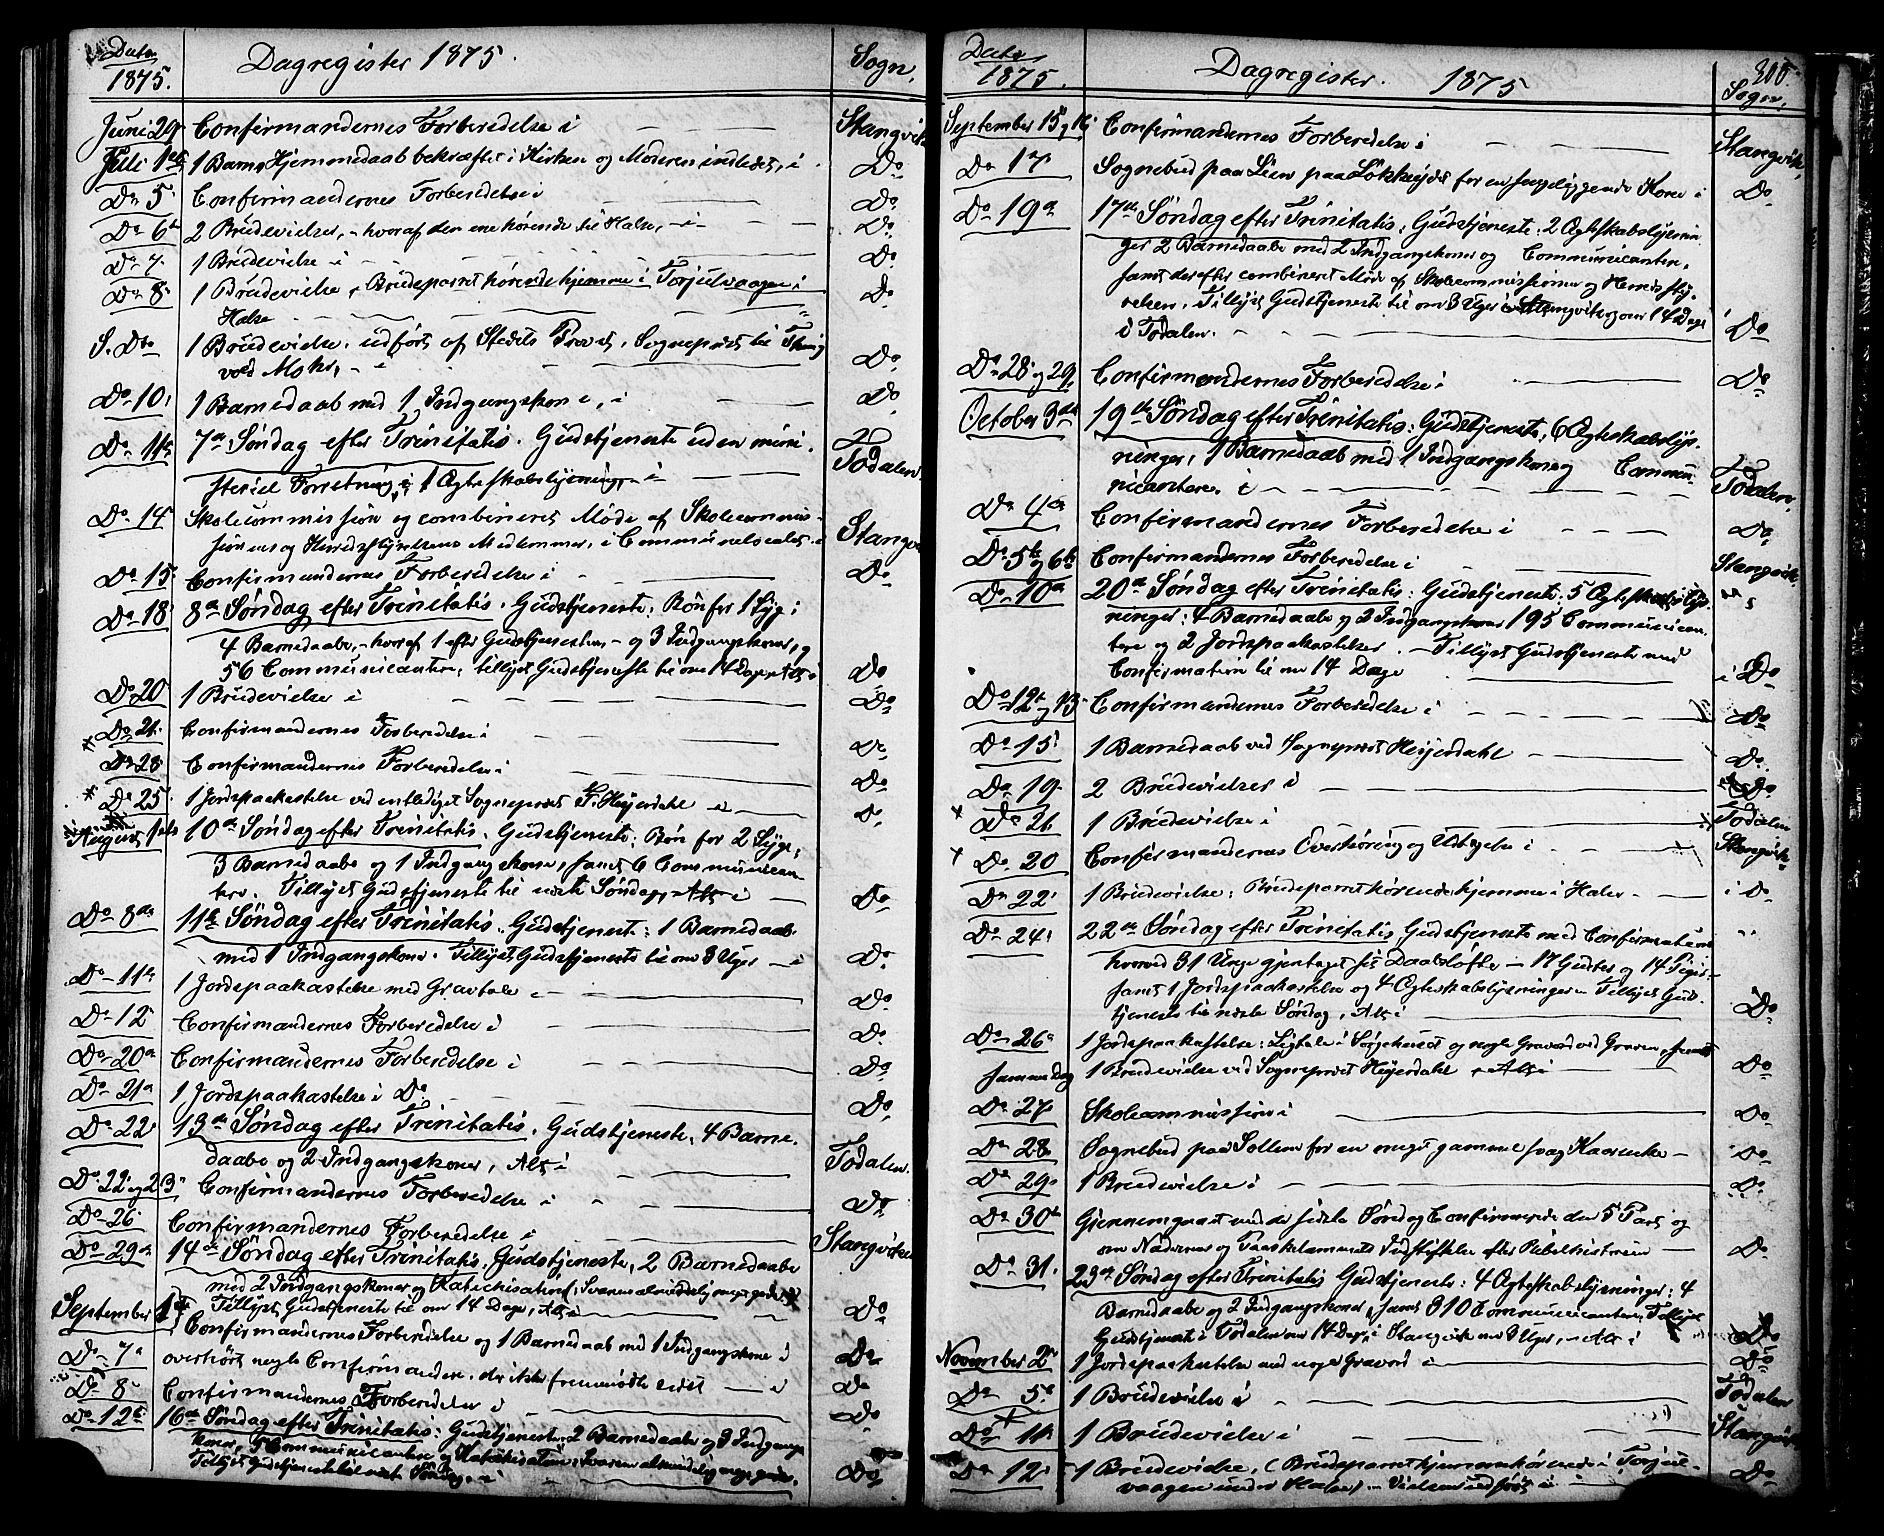 Dato
1875.
Dagregister 1875.
Sogn.
Juni 29 Confirmandernes Forberedelse i Stangvik
Juli 1ste 1 Barns Hjemmedaab bekræftet i Kirken og Moderen indledet, i Do
Do 5 Confirmandernes Forberedelse i Do
Do 6te 2 Brudevielser, hvoraf den ene hørende til Halse, i Do
Do 7 1 Brudevielse i Do
Do 8 1 Brudevielse, Brudeparret hørende hjemme i Torjulvaagen i
Halse Do
S. Dto 1 Brudevielse, udført af Stedets Provst, Sognepræst til Thing
vold Mohr, i Do
Do 10 1 Barnedaab med 1 Indgangskone, i Do
Do 11te 7de Søndag efter Trinitatis. Gudstjeneste uden mini
steriel Forretning, 1 Ægteskabslysning, i Todalen
Do 14 Skolecommission og combineret Møde af Skolecommis
sionens og Herredsstyrelsens Medlemmer, i Communelocalet i Stangvik
Do 15 Confirmandernes Forberedelse i Do
Do 18 8de Søndag efter Trinitatis. Gudstjeneste: Bøn for 1 Syg;
4 Barnedaabe, hvoraf 1 efter Gudstjenesten, og 3 Indgangskoner, og
56 Communicantere; tillyst Gudstjeneste til om 14 Dage, Alt i Do
Do 20 1 Brudevielse i Do
Do 21 Confirmandernes Forberedelse i Do
Do 23 Confirmandernes Forberedelse i Do
Do 25 1 Jordspaakastelse ved entlediget Sognepræst F. Heyerdahl i Do
August 1ste 10de Søndag efter Trinitatis. Gudstjeneste: Bøn for 2 Syge,
3 Barnedaabe og 1 Indgangskone, samt 6 Communican
tere. Tillyst Gudstjeneste til næste Søndag, Alt i Do
Do 8de 11te Søndag efter Trinitatis. Gudstjeneste: 1 Barnedaab
med 1 Indgangskone. Tillyst Gudstjeneste til om 3 Uger i Do
Do 11te 1 Jordspaakastelse med Gravtale i Do
Do 12 Confirmandernes Forberedelse i Do
Do 20de Confirmandernes Forberedelse i Do
Do 21de 1 Jordspaakastelse i Do. Do
Do 22 13de Søndag efter Trinitatis. Gudstjeneste, 4 Barne
daabe og 2 Indgangskoner, Alt i Todalen
Do 22 og 23 Confirmandernes Forberedelse i Do
Do 26 Confirmandernes Forberedelse i Stangvik
Do 29de 14de Søndag efter Trinitatis. Gudstjeneste, 2 Barnedaabe
med 2 Indgangskoner og Katechisation, Svarene almindelig meget gode.
Tillyst Gudstjeneste til om 14 Dage, Alt i Do
September 1ste Confirmandernes Forberedelse og 1 Barnedaab med 1 Indgangskone i Do
Do 7de overhørt nogle Confirmander, der ikke fremmødte sidst i Do
Do 8 Confirmandernes Forberedelse i Do
Do 12te 16de Søndag efter Trinitatis: Gudstjeneste, 2 Barnedaabe og 3 Indgangs
koner, Communicantere og Katekisation, Svarene almindelig meget gode.
Tillyst Gudstjeneste til næste Søndag. i Do
Dato
1875.
Dagregister. 1875
Sogn.
September 15 og 16 Confirmandernes Forberedelse i Stangvik
Do 17 Sognebud paa Lien paa Løkkejdet for en sengeliggende Kone i Do
Do 19de 17de Søndag efter Trinitatis, Gudstjeneste. 2 Ægteskabslysnin
ger 2 Barnedaabe med 2 Indgangskoner og Communicantere,
samt derefter combineret Møde af Skolecommissionen og Herredssty
relsen. Tillyst Gudstjeneste til om 3 Uger i Stangvik og om 14 Dage
i Todalen. Do
Do 28 og 29 Confirmandernes Forberedelse i Do
October 3die 19de Søndag efter Trinitatis: Gudstjeneste, 6 Ægteskabslys
ninger, 1 Barnedaab med 1 Indgangskone og Commu
nicantere i Todalen
Do 4de Confirmandernes Forberedelse i Do
Do 5te og 6te Confirmandernes Forberedelse i Stangvik
Do 10de 20de Søndag efter Trinitatis: Gudstjeneste. 5 Ægteskabslys
ninger: 4 Barnedaabe og 2 Indgangskoner 195 Communican
tere og 2 Jordspaakastelser. Tillyst Gudstjeneste med
Confirmation til om 14 Dage i Do
Do 12te og 13 Confirmandernes Forberedelse i Do
Do 15 1 Barnedaab ved Sognepræst Heyerdahl Do
Do 19 2 Brudevielser i Do
Do 21 1 Brudevielse i Todalen
Do 20 Confirmandernes Overhøring og Udtagelse i Stangvik
Do 22 1 Brudevielse: Brudeparret hørende hjemme i Halse i Do
Do 24 22de Søndag efter Trinitatis. Gudstjeneste med Confirmation "
hvorved 31 Unge gjentoget sit Daabsløfte 17 Gutter og 14 Piger
samt 1 Jordspaakastelse og 4 Ægteskabslysninger. Tillyst Gud
stjeneste til næste Søndag, Alt i Do
Do 26 1 Jordspaakastelse: Ligtale i Sørgehuset og nogle Gravord ved Graven, samt
samme Dag 1 Brudevielse ved Sognepræst Heyerdahl, Alt i Do
Do 27 Skolecommission i Do
Do 28 Sognebud paa Sollem for en meget gammel svag Kaarenke Do
Do 29 1 Brudevielse i Do
Do 30te Gjennemgaaet med de sidste Søndag Confirmerede den 5 Part og
om Nadveren og Paaskelammets Indstiftelse efter Bibelhistorien Do
Do 31 23de Søndag efter Trinitatis Gudstjeneste: 4 Ægteskabslysninger; 4
Barnedaabe og 2 Indgangskoner, samt 310 Communicantere, Tillyst
Gudstjeneste i Todalen om 14 Dage, i Stangvik om 3 Uger, Alt i Do
November 2 1 Jordspaakastelse med noget Gravord i Do
Do 5te 1 Brudevielse i Todalen
Do 11te 1 Brudevielse i Stangvik
Do 12 1 Brudevielse, (Brudeparret hjemmehørende i Torjul
vaagen under Halse) Vielsen udført i Do